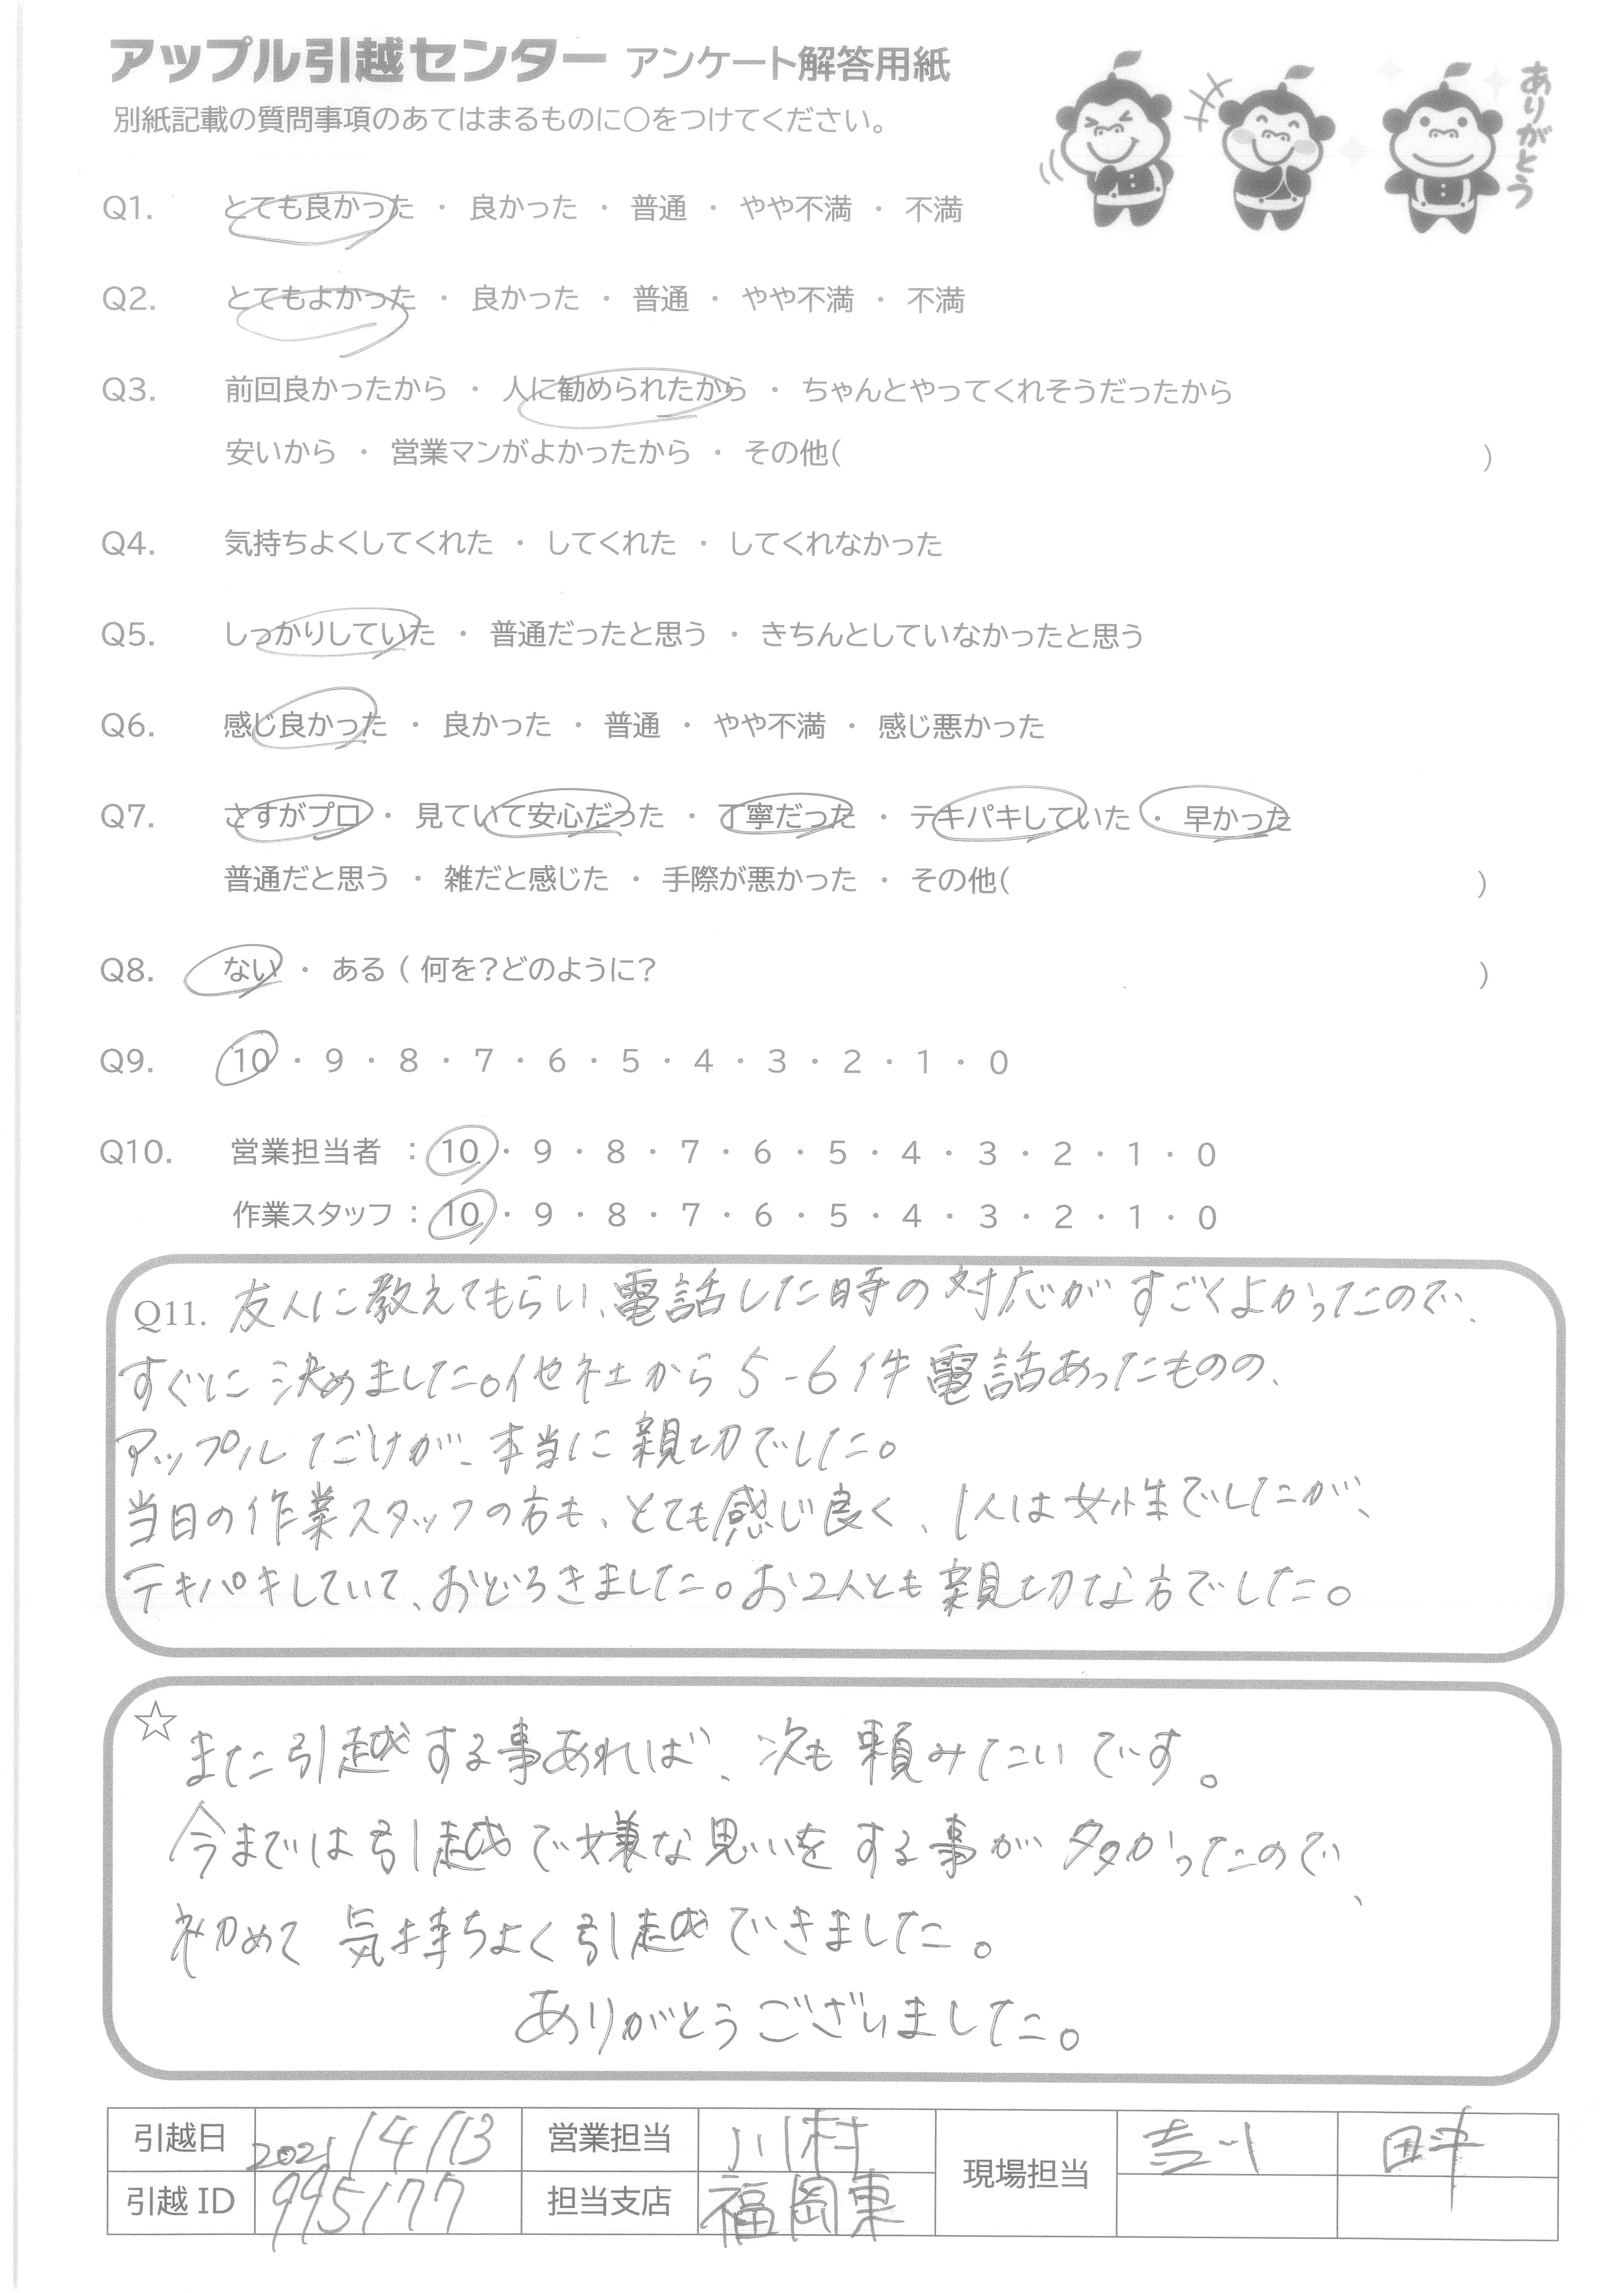 アップル引越センター アンケート解答用紙
ありがとう
別紙記載の質問事項のあてはまるものに○をつけてください。
Q1. とても良かった ・ 良かった ・ 普通 ・ やや不満 ・ 不満
Q2. とてもよかった ・ 良かった ・ 普通 ・ やや不満 ・ 不満
Q3. 前回良かったから ・ 人に勧められたから ・ ちゃんとやってくれそうだったから
安いから ・ 営業マンがよかったから ・ その他( )
Q4. 気持ちよくしてくれた ・ してくれた ・ してくれなかった
Q5. しっかりしていた ・ 普通だったと思う ・ きちんとしていなかったと思う
Q6. 感じ良かった ・ 良かった ・ 普通 ・ やや不満 ・ 感じ悪かった
Q7. さすがプロ ・ 見ていて安心だった ・ 丁寧だった ・ テキパキしていた ・ 早かった
普通だと思う ・ 雑だと感じた ・ 手際が悪かった ・ その他( )
Q8. ない ・ ある ( 何を?どのように? )
Q9. 10 ・ 9 ・ 8 ・ 7 ・ 6 ・ 5 ・ 4 ・ 3 ・ 2 ・ 1 ・ 0
Q10. 営業担当者 : 10 ・ 9 ・ 8 ・ 7 ・ 6 ・ 5 ・ 4 ・ 3 ・ 2 ・ 1 ・ 0
作業スタッフ : 10 ・ 9 ・ 8 ・ 7 ・ 6 ・ 5 ・ 4 ・ 3 ・ 2 ・ 1 ・ 0
Q11. 友人に教えてもらい、電話した時の対応がすごくよかったので、
すぐに決めました。他社から5-6件電話あったものの、
アップルだけが、本当に親切でした。
当日の作業スタッフの方も、とても感じ良く、1人は女性でしたが、
テキパキしていて、おどろきました。お2人とも親切な方でした。
☆ また引越する事あれば、次も頼みたいです。
今までは引越で嫌な思いをする事が多かったので、
初めて気持ちよく引越できました。
ありがとうございました。
引越日 2021/4/13 営業担当 川村 現場担当 吉川 畔
引越 ID 995177 担当支店 福岡東